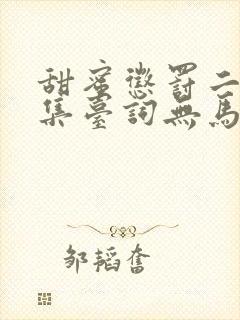 甜蜜懲罰二
集臺詞無馬
邹韬奮